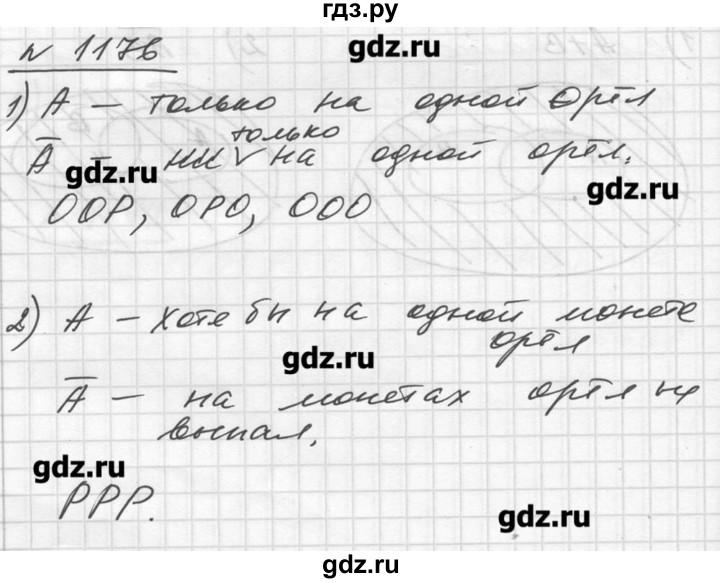 гдз.ру
N 1176
gdz.ru
1) A — только на одной орёл
только
Ā — на одной орёл.
gdz.ru
gdz.ru
ООР, ОРО, ООО
2) A — хотя бы на одной монете
орёл
gdz.ru
Ā — на монетах орёл не
выпал.
gdz.ru
РРР.
gdz.ru
gdz.ru